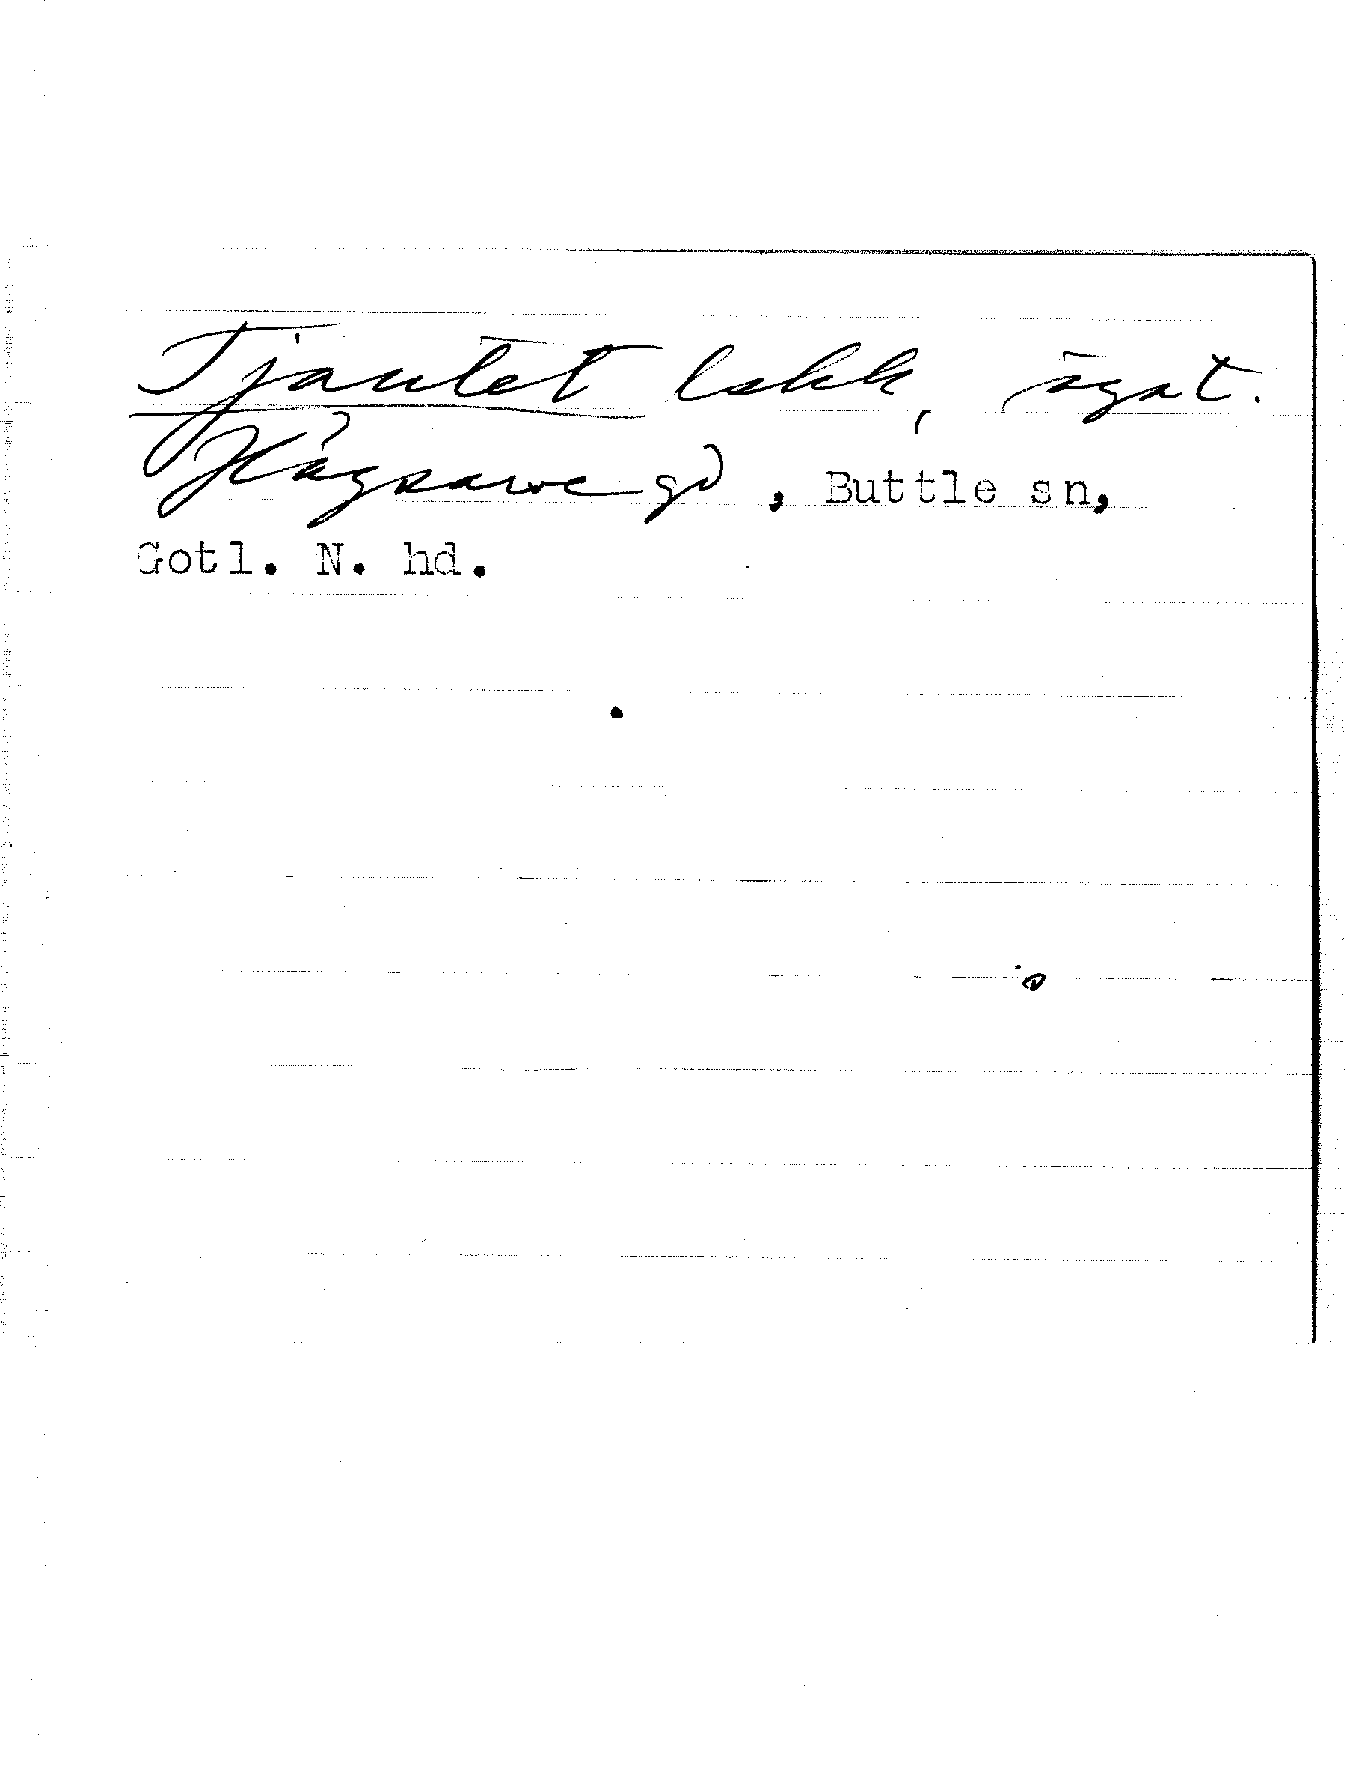 Tjautet lokk, ägat.
Högsarve gd, Buttle sn,
Gotl. N. hd.